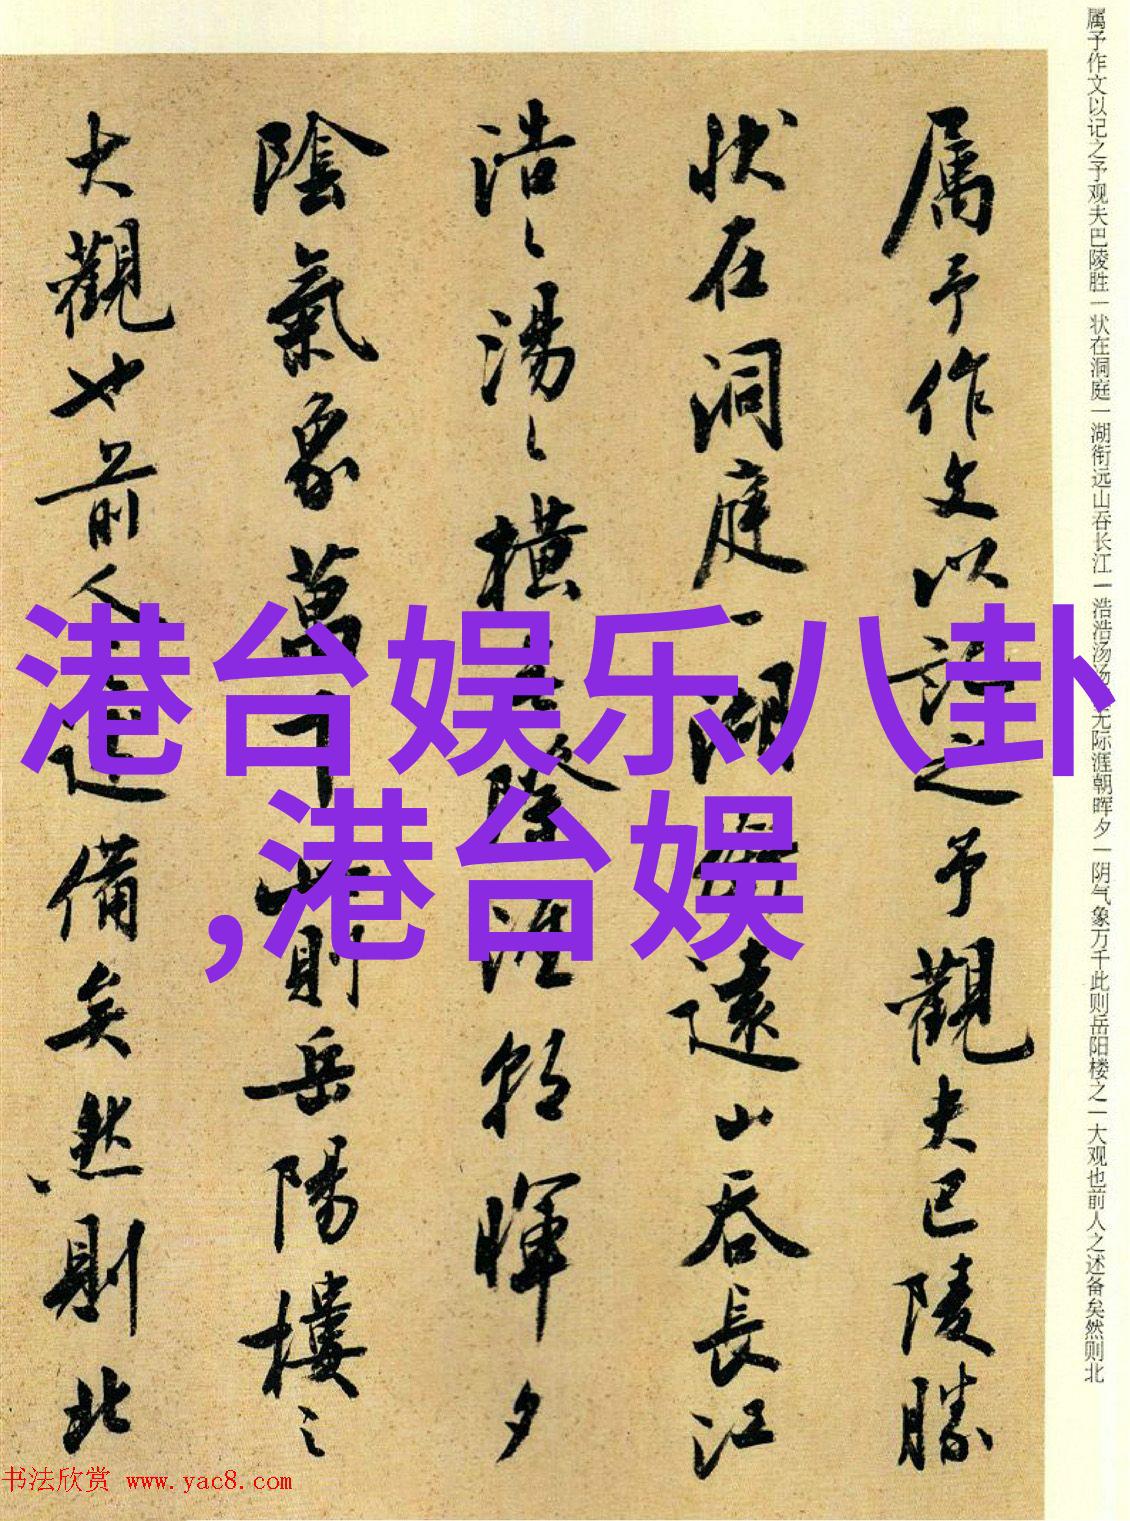 属予作文以记之予观夫巴陵胜一状在洞庭一湖衔远山吞长江一浩浩汤汤无际涯朝晖夕一阴气象万千此则岳阳楼之一大观也前人之述备矣然则北
属予作文以記之予觀夫巴陵勝
狀在洞庭一湖遠山吞長江
浩〻湯〻橫無際涯朝暉夕
陰氣象萬千此則岳陽樓之
大觀也前人之述備矣然則北
港台娱乐八卦
,港台娱
书法欣赏 www.yac8.com